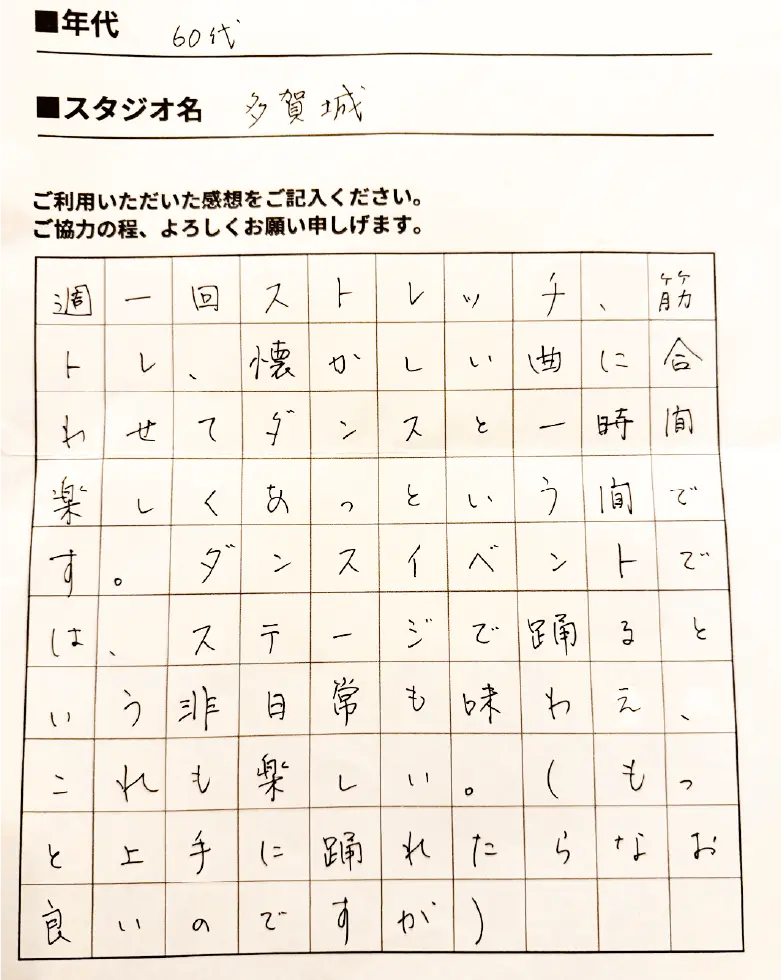 ■年代 60代
■スタジオ名 多賀城
ご利用いただいた感想をご記入ください。
ご協力の程、よろしくお願い申しげます。
週一回ストレッチ、筋
トレ、懐かしい曲に合
わせてダンスと一時間
楽しくあっという間で
す。ダンスイベントで
は、ステージで踊ると
いう非日常も味わえ、
これも楽しい。(もっ
と上手に踊れたらなお
良いのですが)